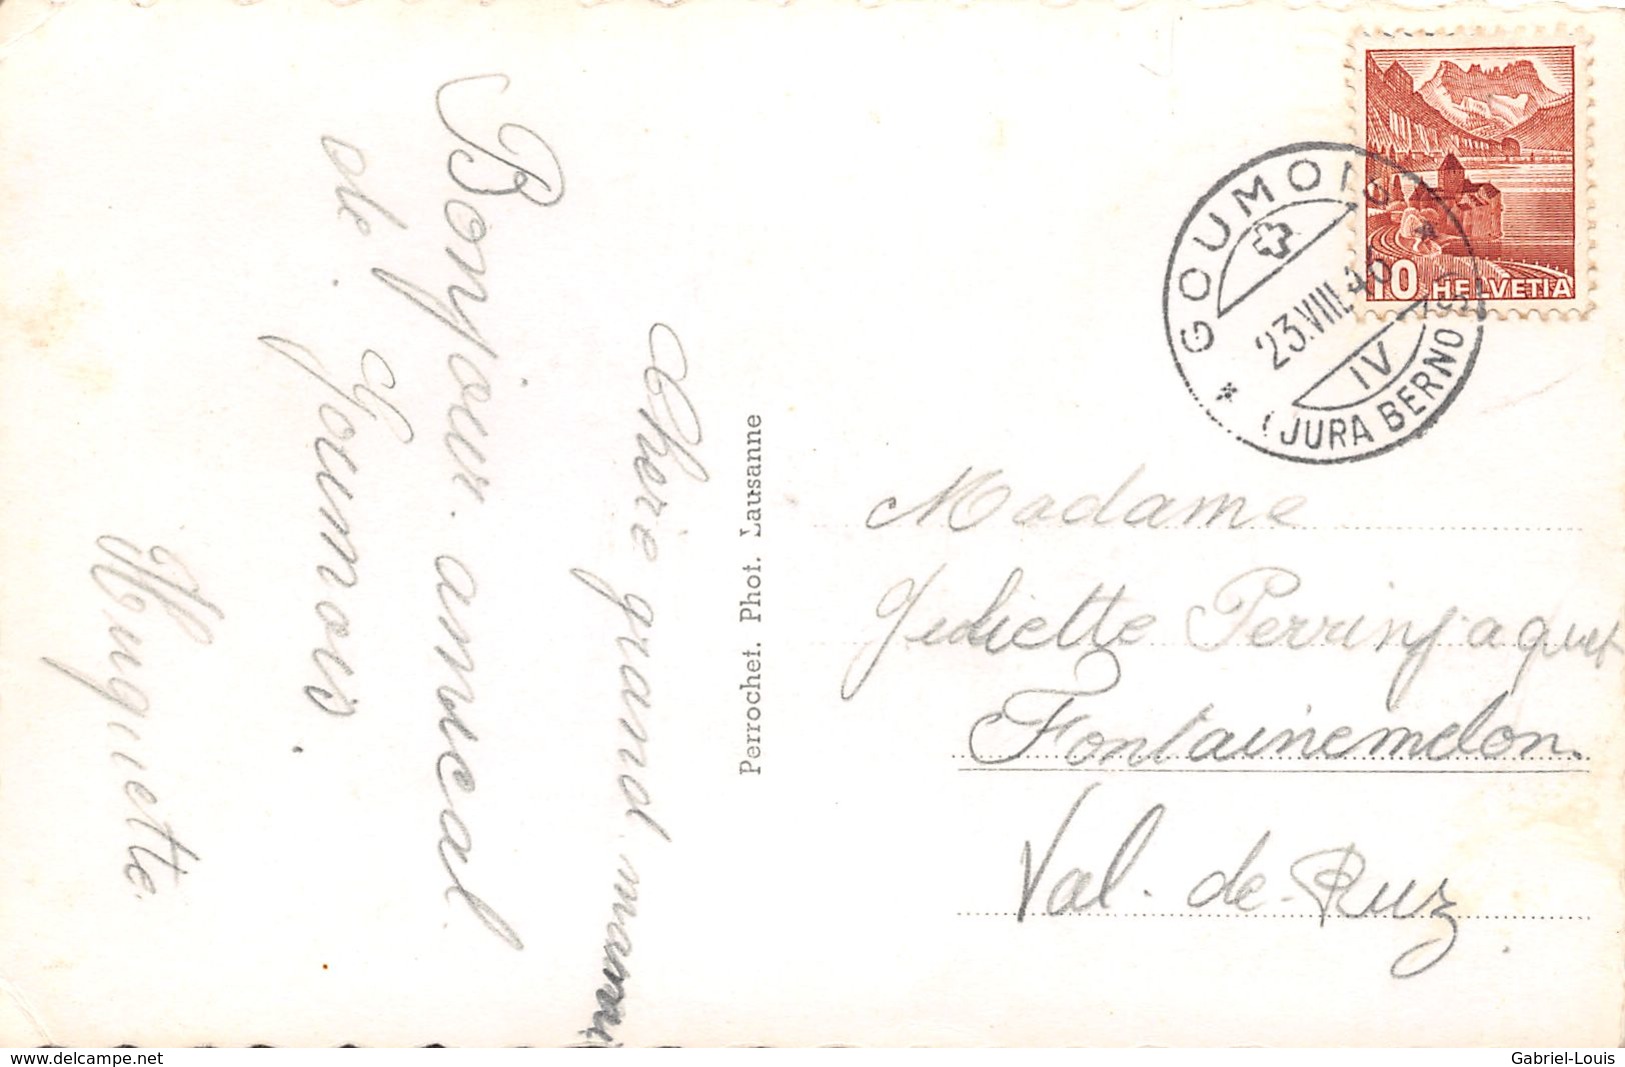 Chère grand maman
Bonjour amical
de Goumois.
Huguette
Perrochet. Phot. Lausanne
10 HELVETIA
GOUMOIS
23.VIII.40
IV
(JURA BERNOIS)
Madame
Juliette Perrinjaquet
Fontainemelon.
Val-de-Ruz.
www.delcampe.net
Gabriel-Louis